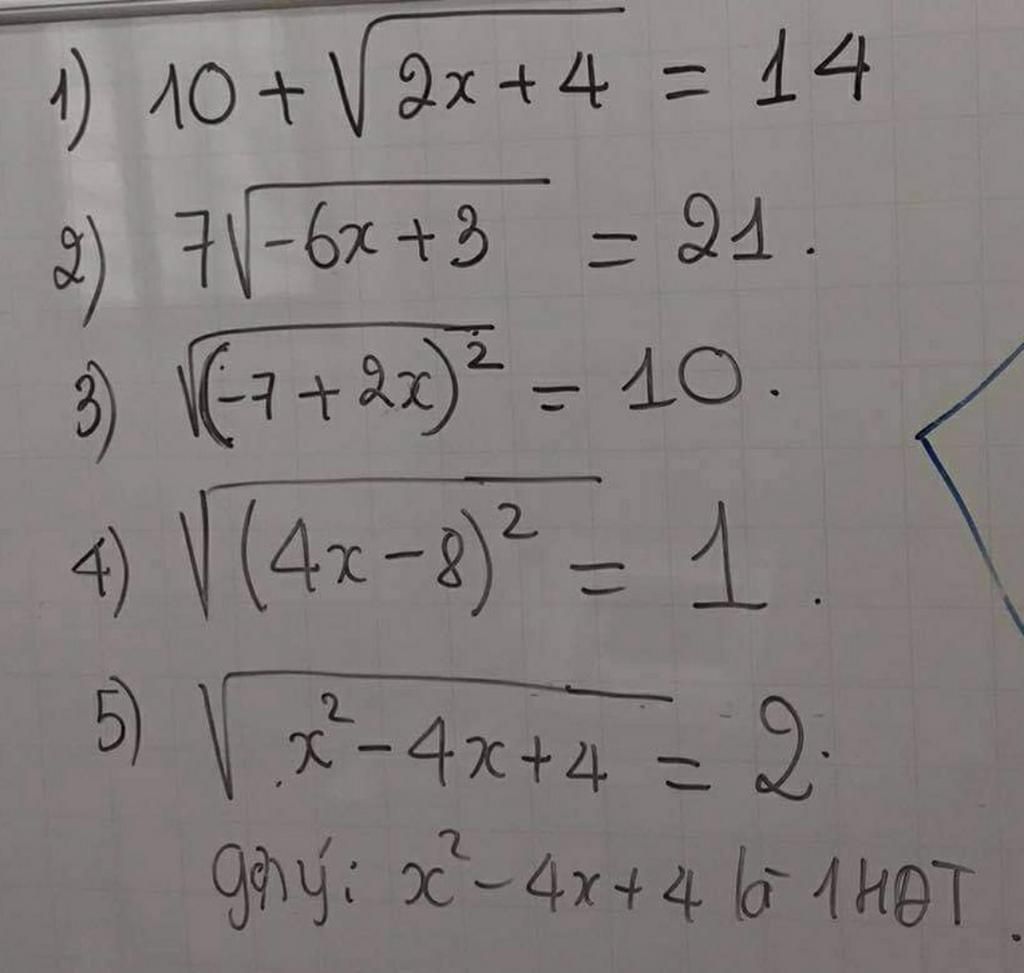 1) 10 + √(2x + 4) = 14
2) 7√(-6x + 3) = 21.
3) √((-7 + 2x)²) = 10.
4) √((4x - 8)²) = 1.
5) √(x² - 4x + 4) = 2.
gợi ý: x² - 4x + 4 là 1 HĐT.